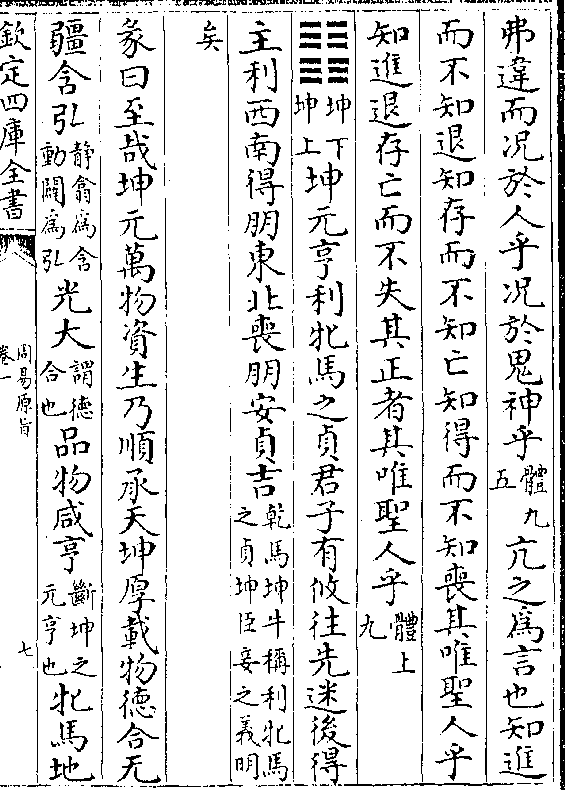 弗違而况於人乎况於鬼神乎體九五亢之爲言也知進
而不知退知存而不知亡知得而不知喪其唯聖人乎
知進退存亡而不失其正者其唯聖人乎體上九
䷁坤下坤上坤元亨利牝馬之貞君子有攸往先迷後得
主利西南得朋東北喪朋安貞吉乾馬坤牛稱利牝馬之貞坤臣妾之義明
矣
彖曰至哉坤元萬物資生乃順承天坤厚載物德合无
疆含弘靜翕爲含動闢爲弘光大謂德合也品物咸亨斷坤之元亨也牝馬地
欽定四庫全書
周易原旨
卷一
七